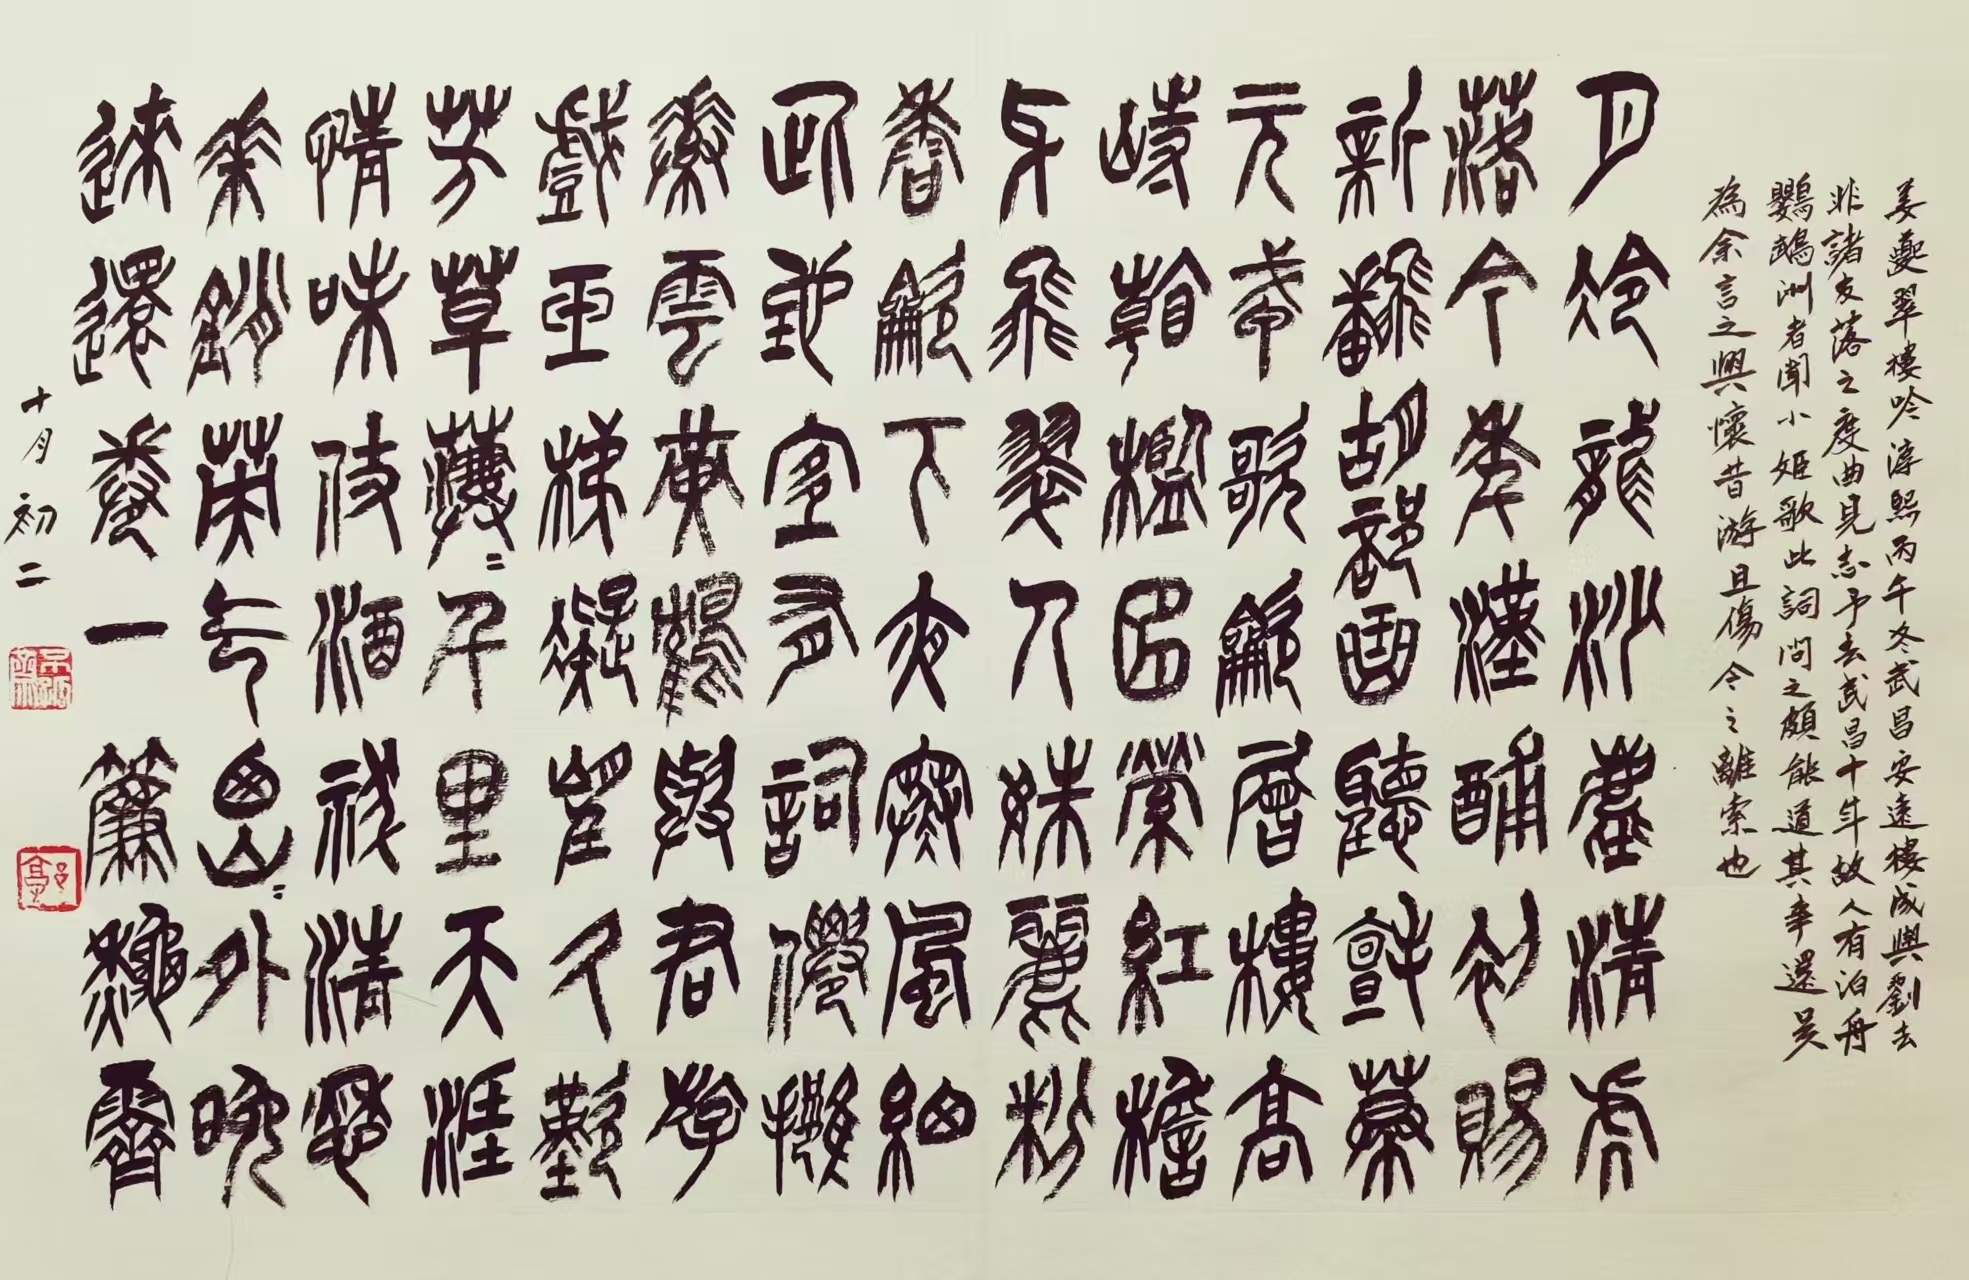 姜夔翠樓吟淳熙丙午冬武昌安遠樓成與劉去
非諸友落之度曲見志予去武昌十年故人有泊舟
鸚鵡洲者聞小姬歌此詞問之頗能道其事還吳
為余言之興懷昔游且傷今之離索也
月冷龍沙塵清虎
落今年漢酺初賜
新翻胡部曲聽氈幕
元戎歌龡層樓高
峙看檻曲縈紅檐
牙飛翠人姝麗粉
香龡下夜寒風細
此地宜有詞僊擁
素雲黃鶴與君游
戲玉梯凝望久歎
芳草萋〻千里天涯
情味仗酒祓清愁
花銷英气西山外晚
來還卷一簾秋霽
十月初二